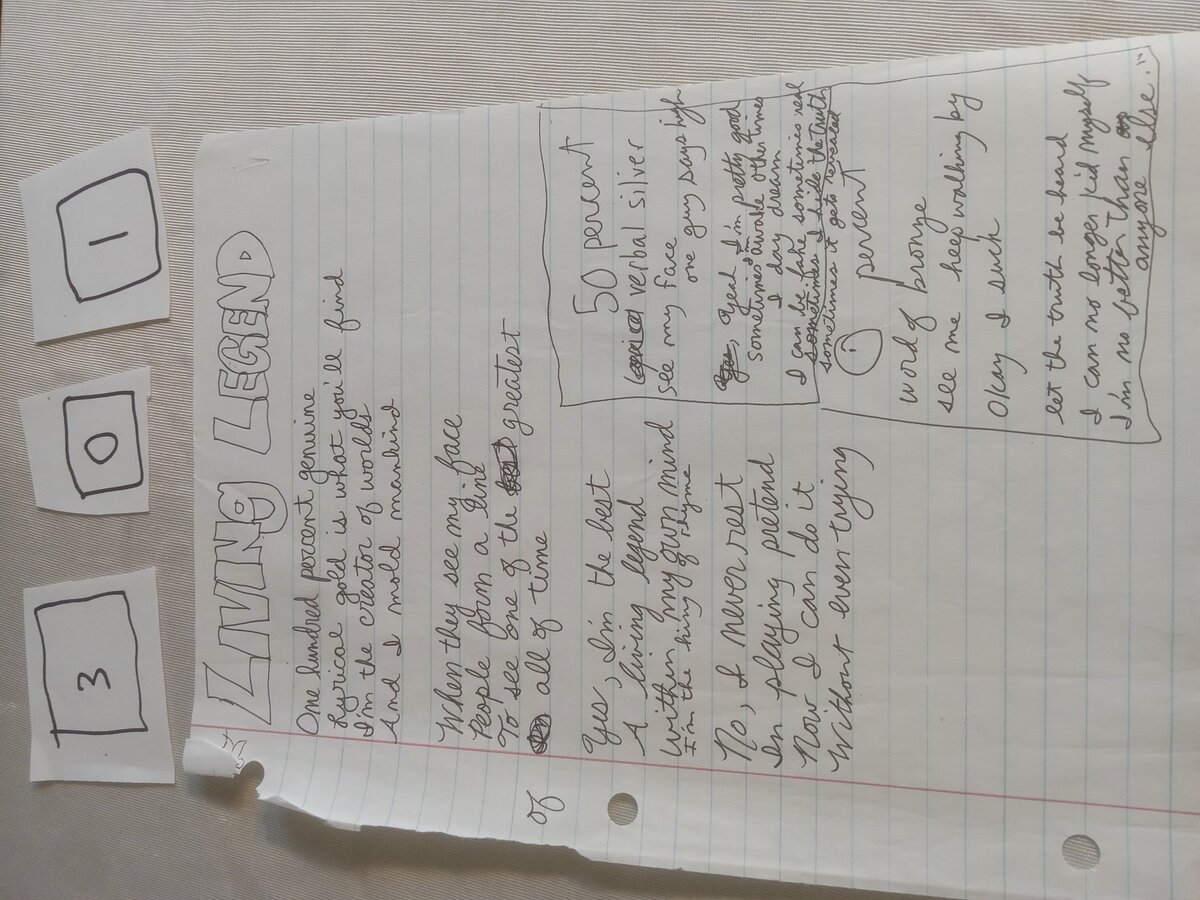 3
0
1
LIVING LEGEND
One hundred percent genuine
Lyrical gold is what you'll find
I'm the creator of worlds
And I mold mankind
When they see my face
People form a line
To see one of the greatest
of all of time
Yes, I'm the best
A living legend
Within my own mind
I'm the king of rhyme
No, I never rest
In playing pretend
Now I can do it
Without even trying
50 percent
verbal silver
see my face
one guy says high
Yeah I'm pretty good
sometimes I'm awake other times
I day dream
I can be fake sometimes real
sometimes I hide the truth
sometimes it gets revealed
1 percent
word of bronze
see me keep walking by
Okay I suck
let the truth be heard
I can no longer kid myself
I'm no better than
anyone else."